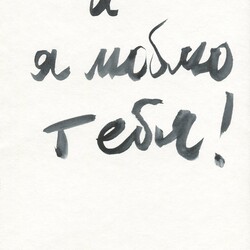 и
я люблю
тебя!